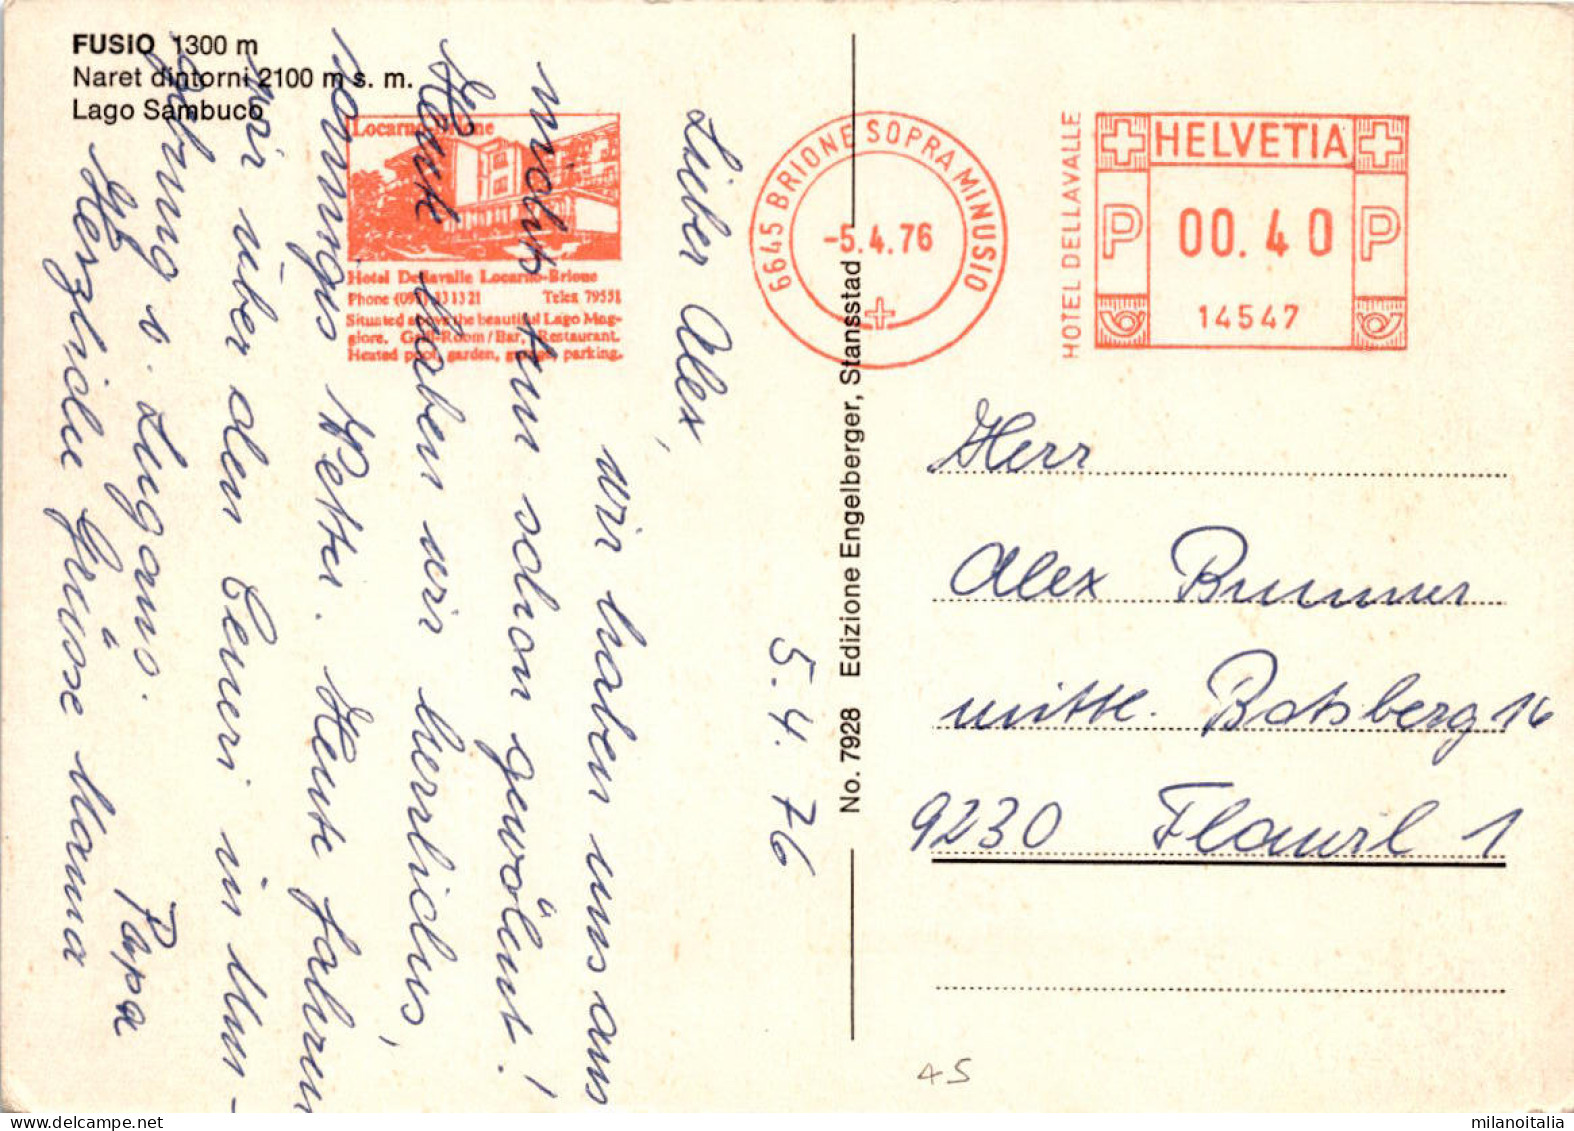 FUSIO 1300 m
Naret dintorni 2100 m s. m.
Lago Sambuco
Locarno-Brione
Hotel Dellavalle Locarno-Brione
Phone (093) 33 13 21 Telex 79551
Situated above the beautiful Lago Mag-
giore. Grill-Room/Bar, Restaurant.
Heated pool, garden, garage, parking.
6645 BRIONE SOPRA MINUSIO
-5.4.76
HOTEL DELLAVALLE
HELVETIA
P 00.40 P
14547
5.4.76
Lieber Alex,
wir haben uns aus
nichts tun schon gewöhnt!
Heute haben wir herrliches,
sonniges Wetter. Heute fahren
wir über den Ceneri in
u. Lugano.
Herzliche Grüsse Mama
Papa
No. 7928 Edizione Engelberger, Stansstad
Herr
Alex Brunner
mittl. Botsberg 16
9230 Flawil 1
45
milanoitalia